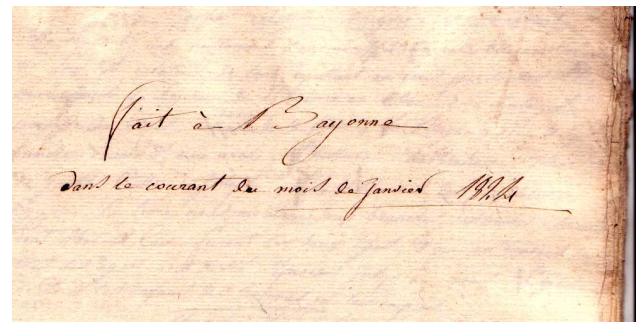 fait à Bayonne
dans le courant du mois de Janvier 1824